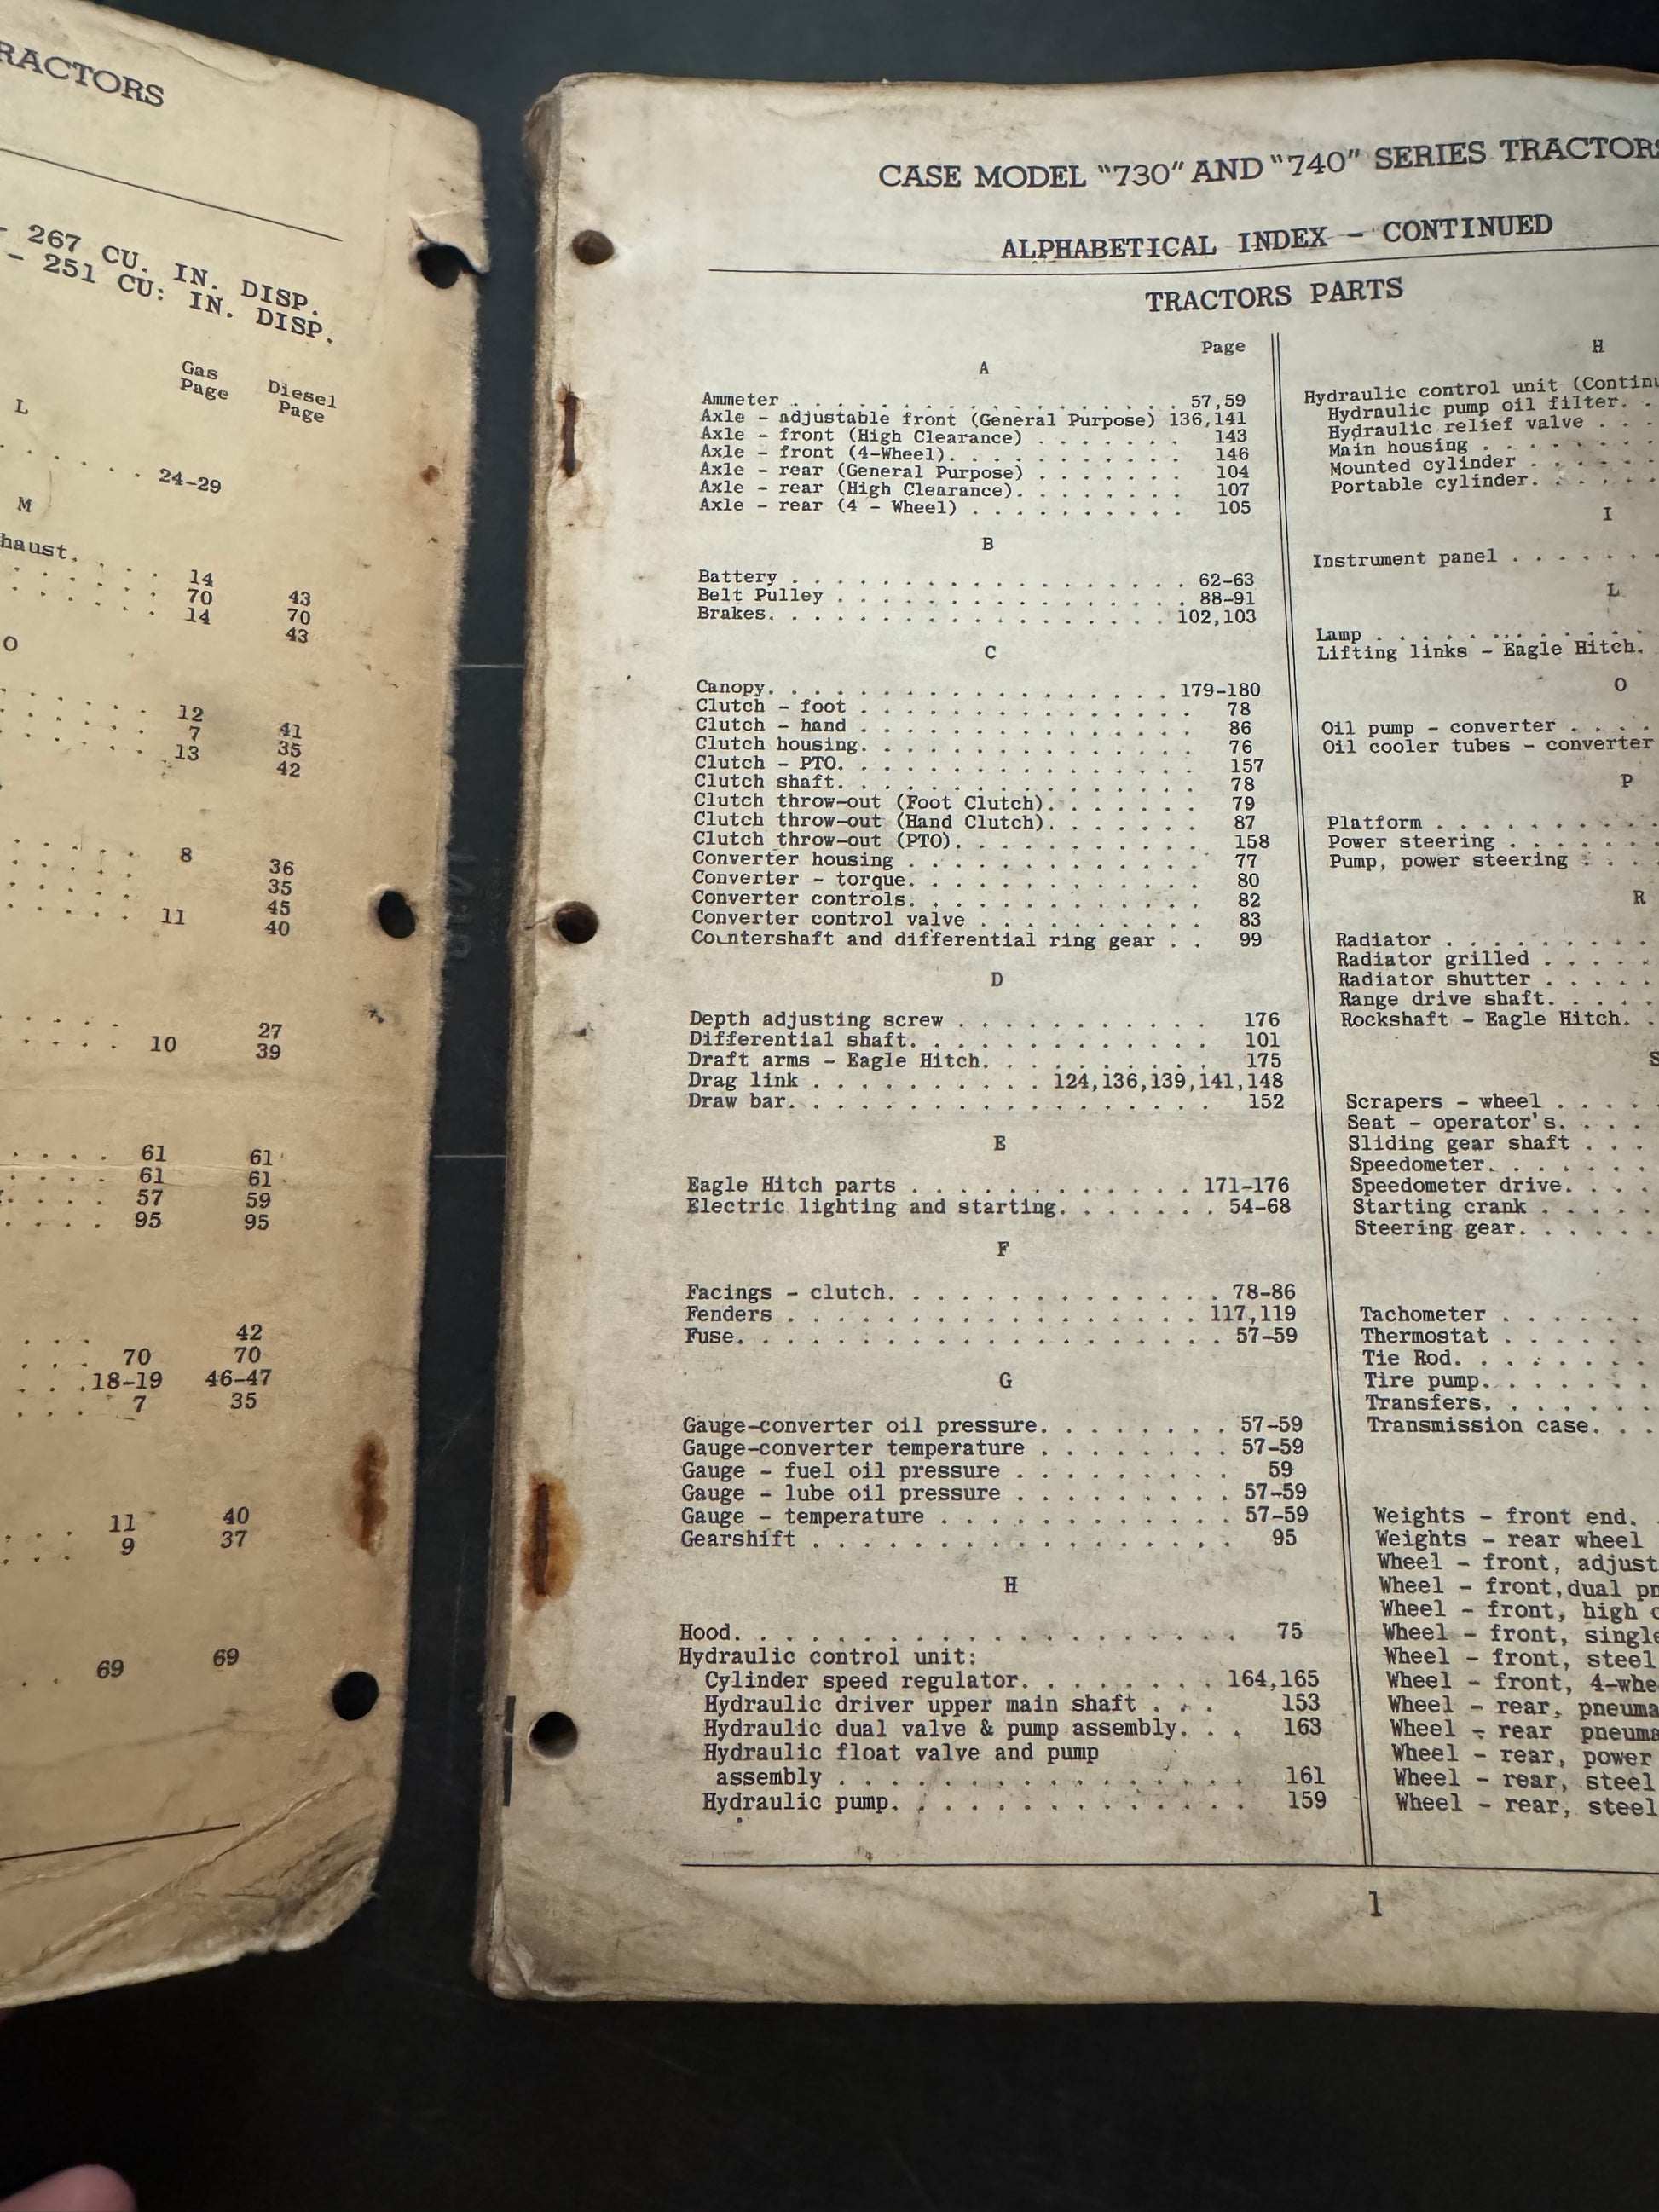 RACTORS
- 267 CU. IN. DISP.
- 251 CU: IN. DISP.
Gas Page Diesel Page
L
. . . . . . 24-29
M
haust. . . . . 14 43
70 70
14 43
O
12 41
7 35
13 42
8 36
35
45
11 40
27
10 39
61 61
61 61
57 59
95 95
42
70 70
18-19 46-47
7 35
11 40
9 37
69 69
CASE MODEL "730" AND "740" SERIES TRACTORS
ALPHABETICAL INDEX - CONTINUED
TRACTORS PARTS
Page
A
Ammeter . . . . . . . . . . . . . . . . . 57,59
Axle - adjustable front (General Purpose) 136,141
Axle - front (High Clearance) . . . . . . . 143
Axle - front (4-Wheel). . . . . . . . . . . 146
Axle - rear (General Purpose) . . . . . . . 104
Axle - rear (High Clearance). . . . . . . . 107
Axle - rear (4 - Wheel) . . . . . . . . . . 105
B
Battery . . . . . . . . . . . . . . . . . 62-63
Belt Pulley . . . . . . . . . . . . . . . 88-91
Brakes. . . . . . . . . . . . . . . . . 102,103
C
Canopy. . . . . . . . . . . . . . . . . 179-180
Clutch - foot . . . . . . . . . . . . . . . 78
Clutch - hand . . . . . . . . . . . . . . . 86
Clutch housing. . . . . . . . . . . . . . . 76
Clutch - PTO. . . . . . . . . . . . . . . . 157
Clutch shaft. . . . . . . . . . . . . . . . 78
Clutch throw-out (Foot Clutch). . . . . . . 79
Clutch throw-out (Hand Clutch). . . . . . . 87
Clutch throw-out (PTO). . . . . . . . . . . 158
Converter housing . . . . . . . . . . . . . 77
Converter - torque. . . . . . . . . . . . . 80
Converter controls. . . . . . . . . . . . . 82
Converter control valve . . . . . . . . . . 83
Countershaft and differential ring gear . . 99
D
Depth adjusting screw . . . . . . . . . . . 176
Differential shaft. . . . . . . . . . . . . 101
Draft arms - Eagle Hitch. . . . . . . . . . 175
Drag link . . . . . . . . . . 124,136,139,141,148
Draw bar. . . . . . . . . . . . . . . . . . 152
E
Eagle Hitch parts . . . . . . . . . . . . 171-176
Electric lighting and starting. . . . . . . 54-68
F
Facings - clutch. . . . . . . . . . . . . . 78-86
Fenders . . . . . . . . . . . . . . . . . 117,119
Fuse. . . . . . . . . . . . . . . . . . . 57-59
G
Gauge-converter oil pressure. . . . . . . . 57-59
Gauge-converter temperature . . . . . . . . 57-59
Gauge - fuel oil pressure . . . . . . . . . 59
Gauge - lube oil pressure . . . . . . . . . 57-59
Gauge - temperature . . . . . . . . . . . . 57-59
Gearshift . . . . . . . . . . . . . . . . . 95
H
Hood. . . . . . . . . . . . . . . . . . . . 75
Hydraulic control unit:
Cylinder speed regulator. . . . . . . . 164,165
Hydraulic driver upper main shaft . . . 153
Hydraulic dual valve & pump assembly. . . 163
Hydraulic float valve and pump
assembly . . . . . . . . . . . . . . . . 161
Hydraulic pump. . . . . . . . . . . . . . 159
H
Hydraulic control unit (Continu
Hydraulic pump oil filter. .
Hydraulic relief valve . . .
Main housing . . . . . . . .
Mounted cylinder . . . . . .
Portable cylinder. . . . . .
I
Instrument panel . . . . . . .
L
Lamp . . . . . . . . . . . . .
Lifting links - Eagle Hitch.
O
Oil pump - converter . . . .
Oil cooler tubes - converter
P
Platform . . . . . . . . . .
Power steering . . . . . . .
Pump, power steering . . . .
R
Radiator . . . . . . . . . .
Radiator grilled . . . . . .
Radiator shutter . . . . . .
Range drive shaft. . . . . .
Rockshaft - Eagle Hitch. .
S
Scrapers - wheel . . . . .
Seat - operator's. . . . .
Sliding gear shaft . . . .
Speedometer. . . . . . . .
Speedometer drive. . . . .
Starting crank . . . . . .
Steering gear. . . . . . .
Tachometer . . . . . . . .
Thermostat . . . . . . . .
Tie Rod. . . . . . . . . .
Tire pump. . . . . . . . .
Transfers. . . . . . . . .
Transmission case. . . .
Weights - front end. .
Weights - rear wheel
Wheel - front, adjust
Wheel - front,dual pn
Wheel - front, high c
Wheel - front, single
Wheel - front, steel
Wheel - front, 4-whe
Wheel - rear, pneuma
Wheel - rear pneuma
Wheel - rear, power
Wheel - rear, steel
Wheel - rear, steel
1